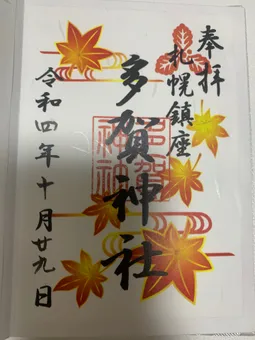 奉拝
札幌鎮座
多賀神社
多賀神社
令和四年十月廿九日